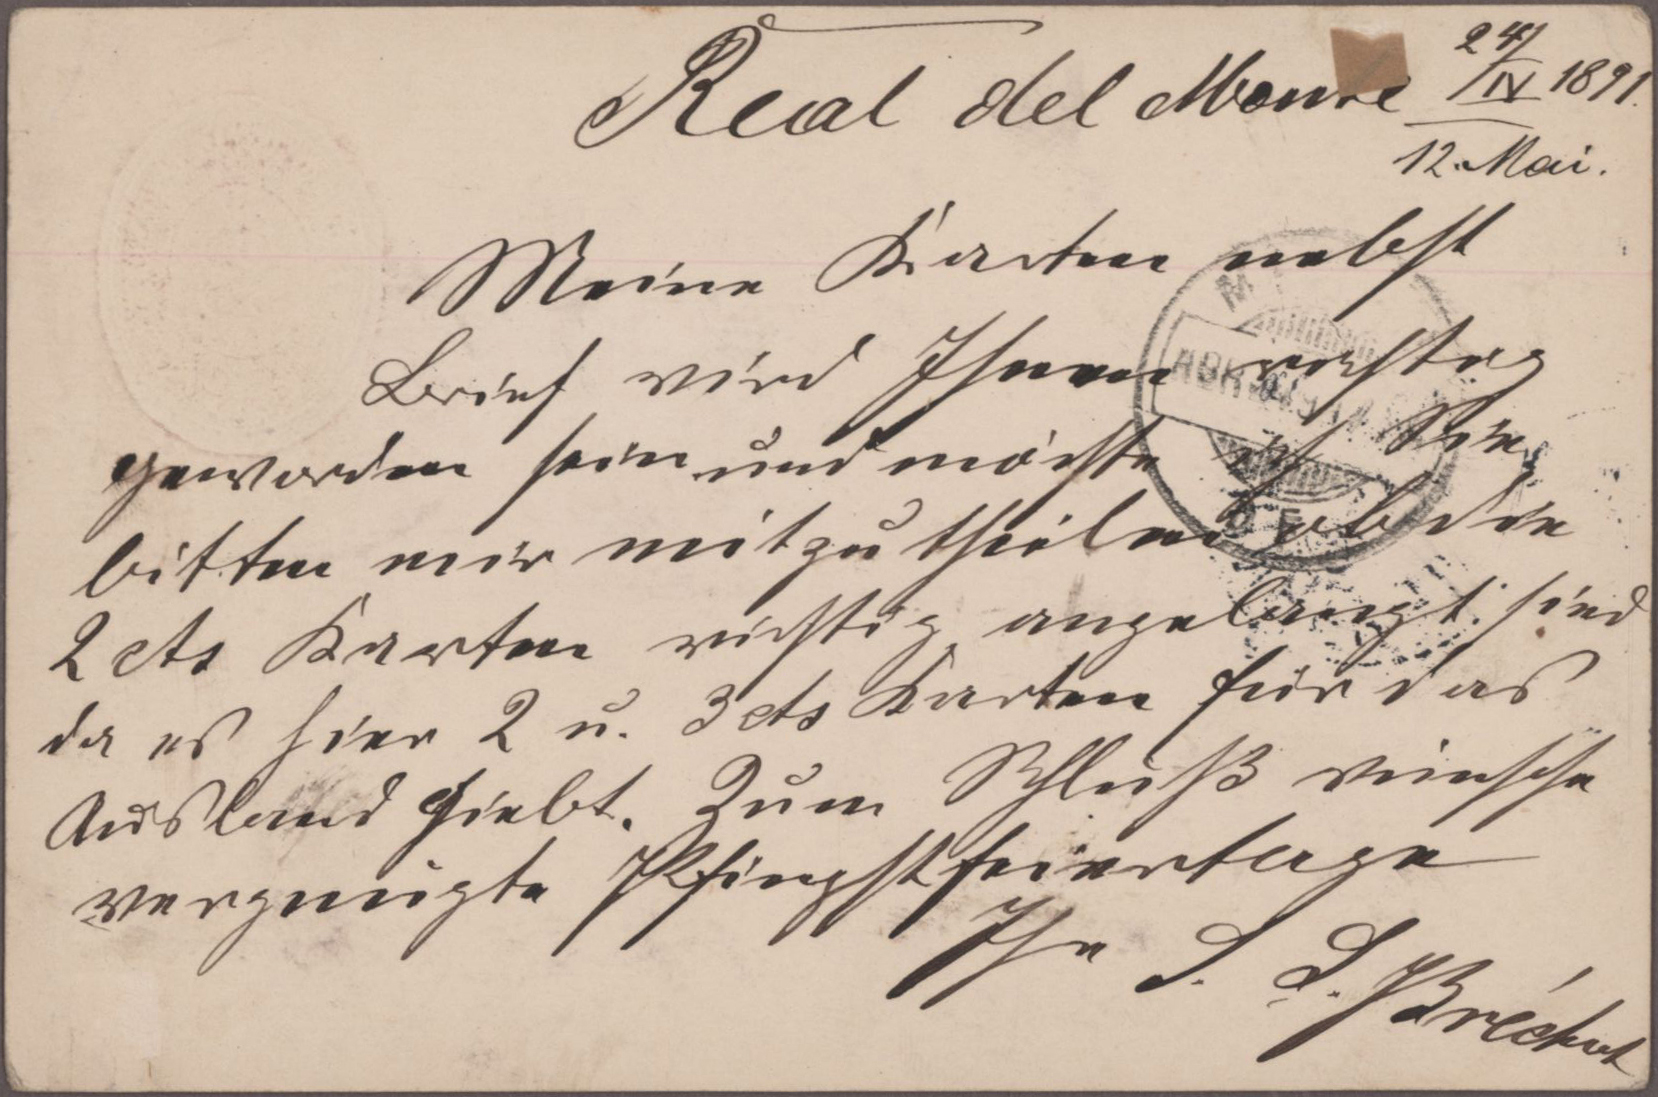 Real del Monte 24/IV 1891.
12. Mai.
Meine Karten nebst
Brief wird Ihnen richtig
geworden sein und möchte ich Sie
bitten mir mitzutheilen ob die
2 cts Karten richtig angelangt sind
da es hier 2 u. 3 cts Karten für das
Ausland giebt. Zum Schluß wünsche
vergnügte Pfingstfeiertage
Ihr